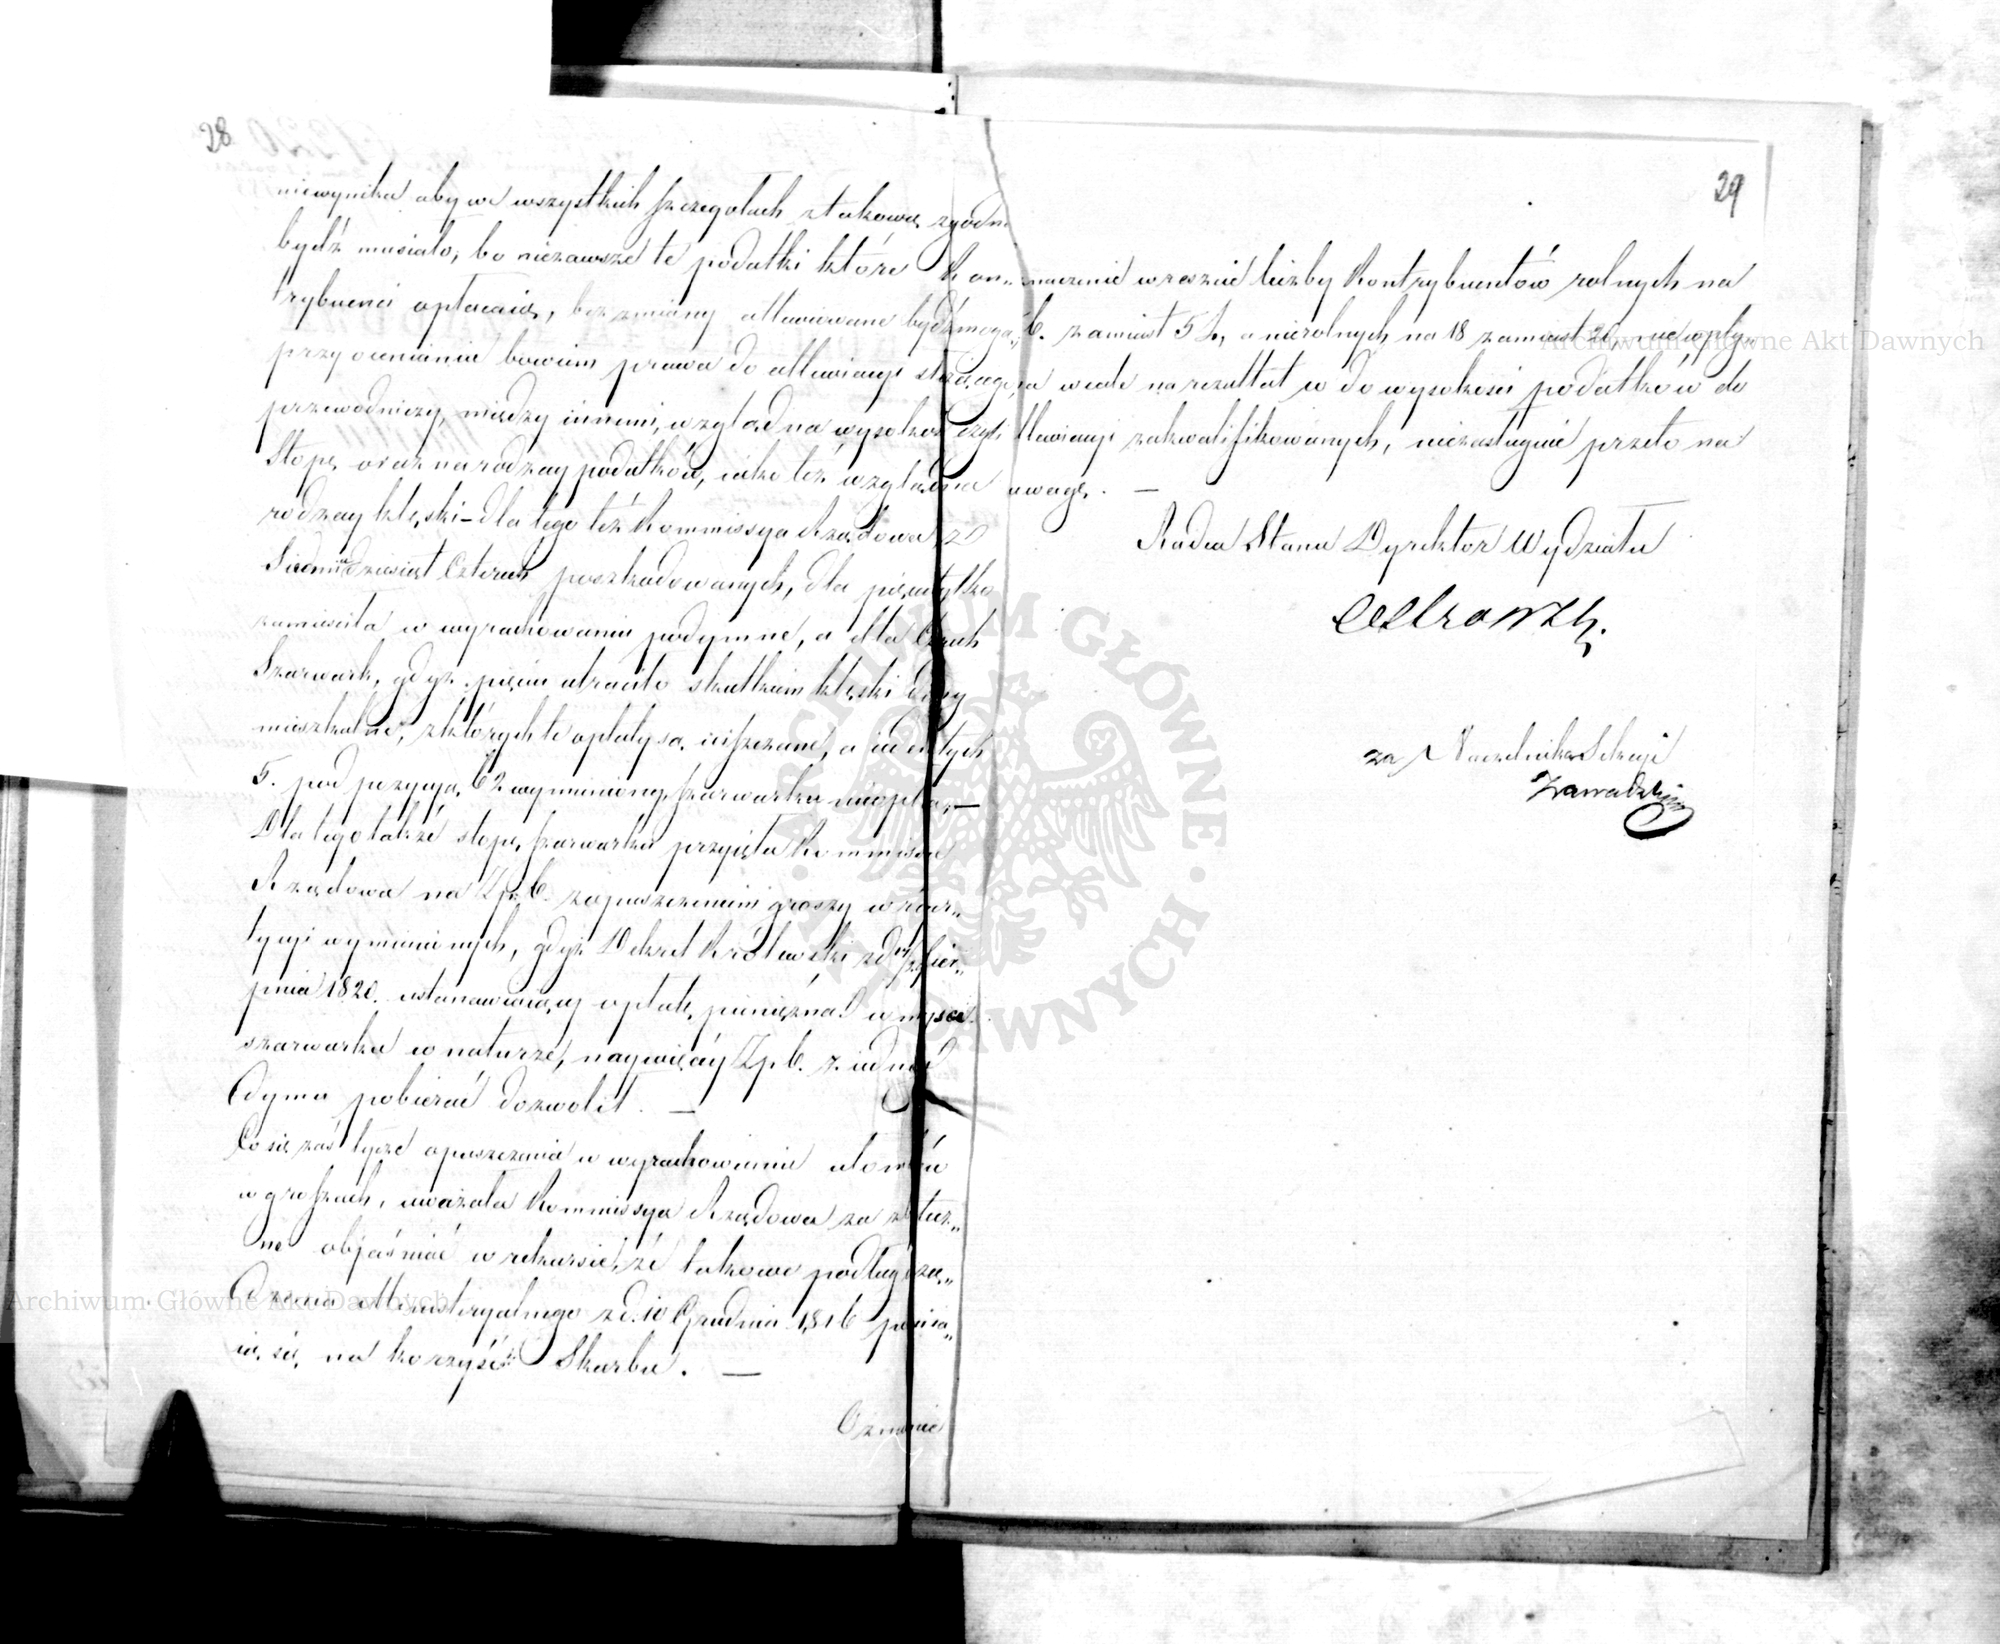 28
niewynika aby we wszystkich szczegołach z takową zgodne
bydź musiało, bo niezawsze te podatki które Kon„
trybuenci opłacaią, bez zmiany allewiowane bydź mogą,
przy ocenianiu bowiem prawa do allewiacyi
przewodniczy, między innemi, wzgląd na wysokość czyli
Stopę oraz na rodzay podatków, iako też wzgląd na
rodzay klęski – dla tego też Kommissya Rządowa z
Siedmiudziesiąt Czterech poszkodowanych, dla pięciu tylko
zamieściła w wyrachowaniu podymne, a dla
Szarwark, gdyż pięciu utraciło skutkiem klęski domy
mieszkalne, z których te opłaty są uiszczane, a ieden z tych
5. pod pozycyą 62 wymieniony szarwarku nieopłaca –
Dla tego także stopę szarwarku przyięła Kommissya
Rządowa na Zp 6. z opuszczeniem groszy w repar„
tycyi wymienionych, gdyż Dekret Królewski z d. Sier„
pnia 1820. ustanawiaiący opłatę pieniężną w mieysce
szarwarku w naturze, naywięcéy Zp 6. z iednego
dymu pobierać dozwolił. —
Co się zaś tycze opuszczenia w wyrachowaniu ułomków
w groszach, uważała Kommissya Rządowa za zbytecz„
ne objaśniać w rekursie, że takowe podług urzą„
dzenia Ministeryalnego z d. 10 Grudnia 1816 pomia„
ią się na korzyść Skarbu. —
Oznacze
29
naczenie wreszcie liczby Kontrybuentów rolnych na
6. zamiast 54, a nierolnych na 18 zamiast 20, nie wpły„
wa wcale na rezultat w do wysokości podatków do
allewiacyi zakwalifikowanych, niezasługuie przeto na
uwagę. —
Radca Stanu Dyrektor Wydziału
za Naczelnika Sekcyi
Zawadzki
Archiwum Główne Akt Dawnych
Archiwum Główne Akt Dawnych
ARCHIWUM GŁÓWNE AKT DAWNYCH